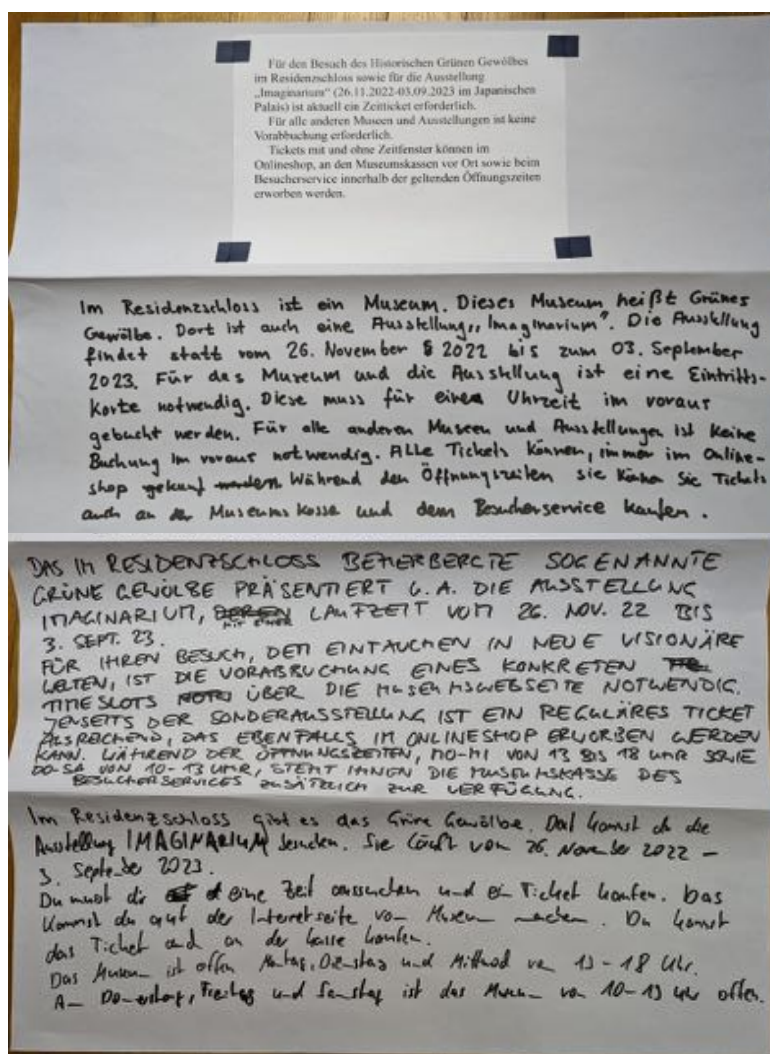 Für den Besuch des Historischen Grünen Gewölbes
im Residenzschloss sowie für die Ausstellung
„Imaginarium“ (26.11.2022-03.09.2023 im Japanischen
Palais) ist aktuell ein Zeitticket erforderlich.
Für alle anderen Museen und Ausstellungen ist keine
Vorabbuchung erforderlich.
Tickets mit und ohne Zeitfenster können im
Onlineshop, an den Museumskassen vor Ort sowie beim
Besucherservice innerhalb der geltenden Öffnungszeiten
erworben werden.
Im Residenzschloss ist ein Museum. Dieses Museum heißt Grünes
Gewölbe. Dort ist auch eine Ausstellung „Imaginarium". Die Ausstellung
findet statt vom 26. November 2022 bis zum 03. September
2023. Für das Museum und die Ausstellung ist eine Eintritts-
karte notwendig. Diese muss für eine Uhrzeit im voraus
gebucht werden. Für alle anderen Museen und Ausstellungen ist keine
Buchung im voraus notwendig. Alle Tickets können, immer im Online-
shop gekauf werden Während den Öffnungszeiten sie können Sie Tickets
auch an der Museums kasse und dem Besucherservice kaufen.
DAS IM RESIDENZSCHLOSS BEHERBERGTE SOGENANNTE
GRÜNE GEWÖLBE PRÄSENTIERT U.A. DIE AUSSTELLUNG
IMAGINARIUM, DEREN MIT EINER LAUFZEIT VOM 26. NOV. 22 BIS
3. SEPT. 23.
FÜR IHREN BESUCH, DEM EINTAUCHEN IN NEUE VISIONÄRE
WELTEN, IST DIE VORABBUCHUNG EINES KONKRETEN
TIMESLOTS ÜBER DIE MUSEUMSWEBSEITE NOTWENDIG.
JENSEITS DER SONDERAUSSTELLUNG IST EIN REGULÄRES TICKET
AUSREICHEND, DAS EBENFALLS IM ONLINESHOP ERWORBEN WERDEN
KANN. WÄHREND DER ÖFFNUNGSZEITEN, MO-MI VON 13 BIS 18 UHR SOWIE
DO-SA VON 10-13 UHR, STEHT IHNEN DIE MUSEUMSKASSE DES
BESUCHERSERVICES ZUSÄTZLICH ZUR VERFÜGUNG.
Im Residenzschloss gibt es das Grüne Gewölbe. Dort kannst du die
Ausstellung IMAGINARIUM besuchen. Sie läuft vom 26. November 2022 –
3. September 2023.
Du musst dir eine Zeit aussuchen und ein Ticket kaufen. Das
kannst du auf der Internetseite vom Museum machen. Du kannst
das Ticket auch an der Kasse kaufen.
Das Museum ist offen Montag, Dienstag und Mittwoch von 13 - 18 Uhr.
Am Donnerstag, Freitag und Samstag ist das Museum von 10-13 Uhr offen.